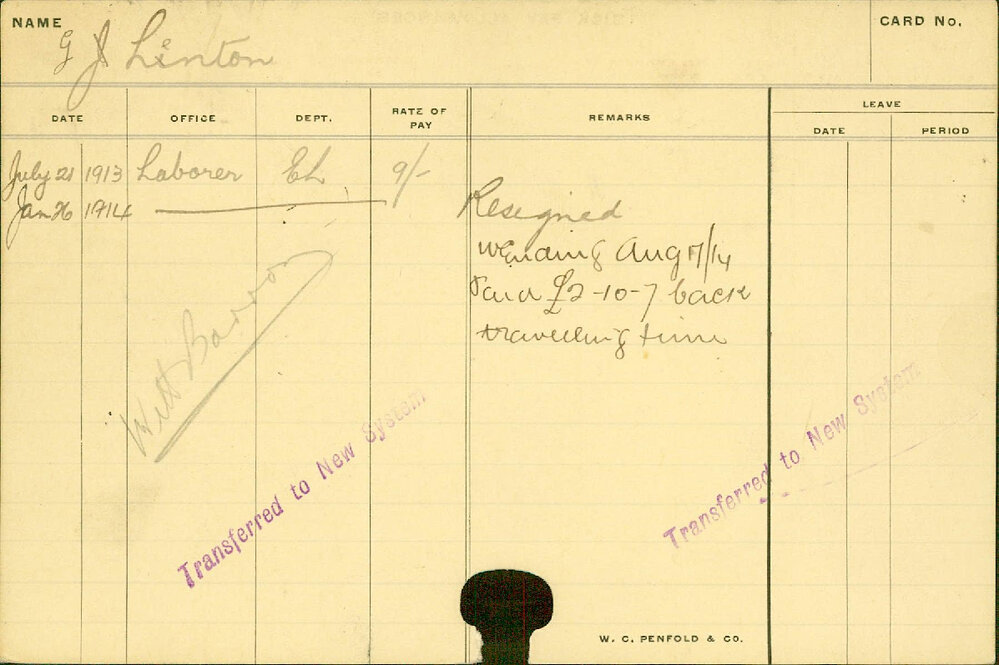 NAME
G J Linton
CARD No.
DATE
OFFICE
DEPT.
RATE OF PAY
REMARKS
LEAVE
DATE
PERIOD
July 21 1913 Laborer EL 9/-
Jan 26 1914 Resigned
Aug 17/14
Paid £2-10-7 back
travelling time
Transferred to New System
Transferred to New System
W. C. PENFOLD & CO.